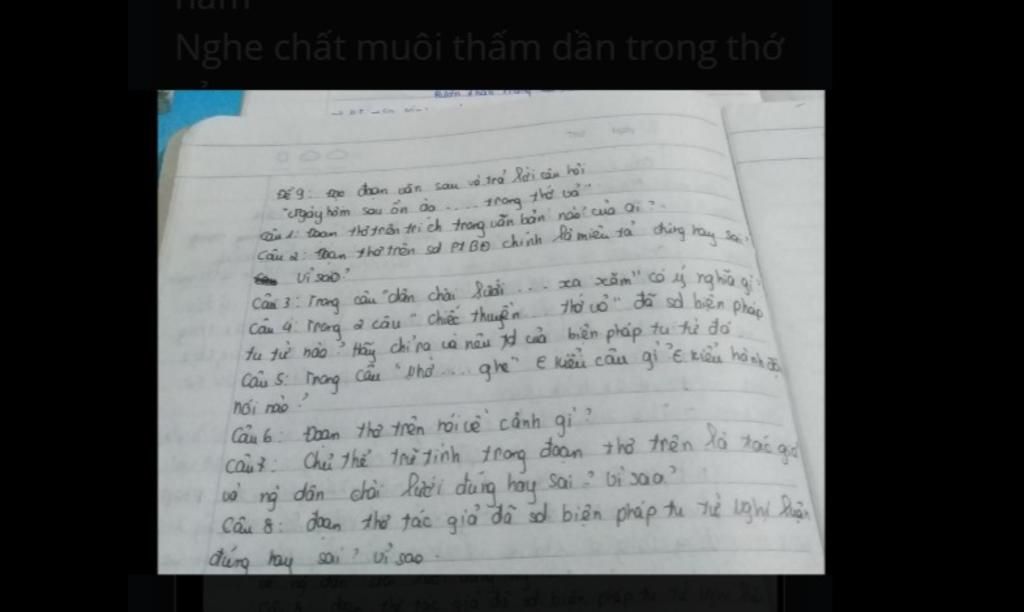 Nghe chất muối thấm dần trong thớ
Đề 9: Đọc đoạn văn sau và trả lời câu hỏi
"Ngày hôm sau ồn ào .... trong thớ vỏ"
Câu 1: Đoạn thơ trên trích trong văn bản nào? của ai?
Câu 2: Đoạn thơ trên sd PTBĐ chính là miêu tả đúng hay sai?
Vì sao?
Câu 3: Trong câu "dân chài lưới ... xa xăm" có ý nghĩa gì?
Câu 4: Trong 2 câu "chiếc thuyền ... thớ vỏ" đã sd biện pháp
tu từ nào? Hãy chỉ ra và nêu td của biện pháp tu từ đó
Câu 5: Trong câu "Nhờ .... ghe" ∈ kiểu câu gì? ∈ kiểu hành độ
nói nào?
Câu 6: Đoạn thơ trên nói về cảnh gì?
Câu 7: Chủ thể trữ tình trong đoạn thơ trên là tác giả
và ng dân chài lưới đúng hay sai? Vì sao?
Câu 8: đoạn thơ tác giả đã sd biện pháp tu từ nghị luận
đúng hay sai? vì sao.